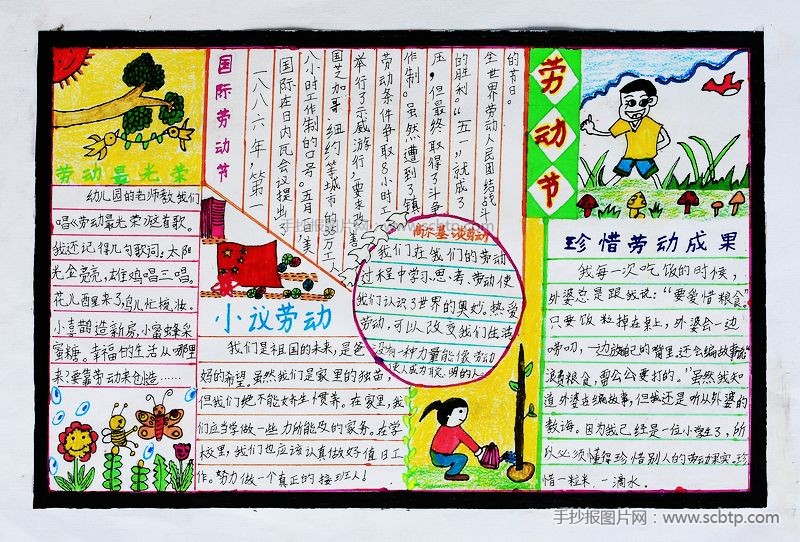 劳动最光荣
幼儿园的老师教我们
唱《劳动最光荣》这首歌。
我还记得几句歌词:太阳
光金亮亮,雄鸡唱三唱。
花儿醒来了,鸟儿忙梳妆。
小喜鹊造新房,小蜜蜂采
蜜糖。幸福的生活从哪里
来?要靠劳动来创造……
国际劳动节
一八八六年,第一
国际在日内瓦会议提出
八小时工作制的口号。五月,美
国芝加哥、纽约等城市的35万工人
举行了示威游行,要求改善
劳动条件争取8小时工
作制。虽然遭到了镇
压,但最终取得了斗争
的胜利。“五一”就成了
全世界劳动人民团结战斗
的节日。
劳动节
高尔基谈劳动
我们在我们的劳动
过程中学习思考,劳动使
我们认识了世界的奥妙。热爱
劳动,可以改变我们生活
没有一种力量能像劳动
使人成为聪明的人。
小议劳动
我们是祖国的未来,是爸
妈的希望。虽然我们是家里的独苗,
但我们绝不能娇生惯养。在家里,我
们应当学做一些力所能及的家务。在学
校里,我们也应该认真做好值日工
作。努力做一个真正的接班人!
珍惜劳动成果
我每一次吃饭的时候,
外婆总是跟我说:“要爱惜粮食。”
只要饭粒掉在桌上,外婆会一边
唠叨,一边放自己的嘴里,还会编故事说
“浪费粮食,雷公公要打的。”虽然我知
道外婆在编故事,但我还是听从外婆的
教诲。因为我已经是一位小学生了,所
以必须懂得珍惜别人的劳动果实,珍
惜一粒米,一滴水。
手抄报图片网 www.scbtp.com
手抄报图片网:www.scbtp.com